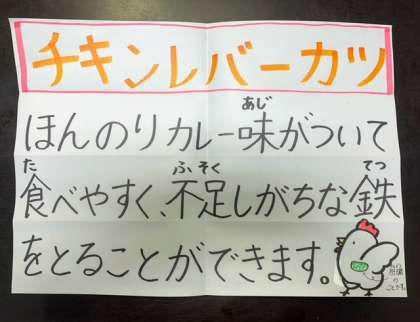 チキンレバーカツ
ほんのりカレー味がついて
あじ
食べやすく、不足しがちな鉄
た ふそく てつ
をとることができます。